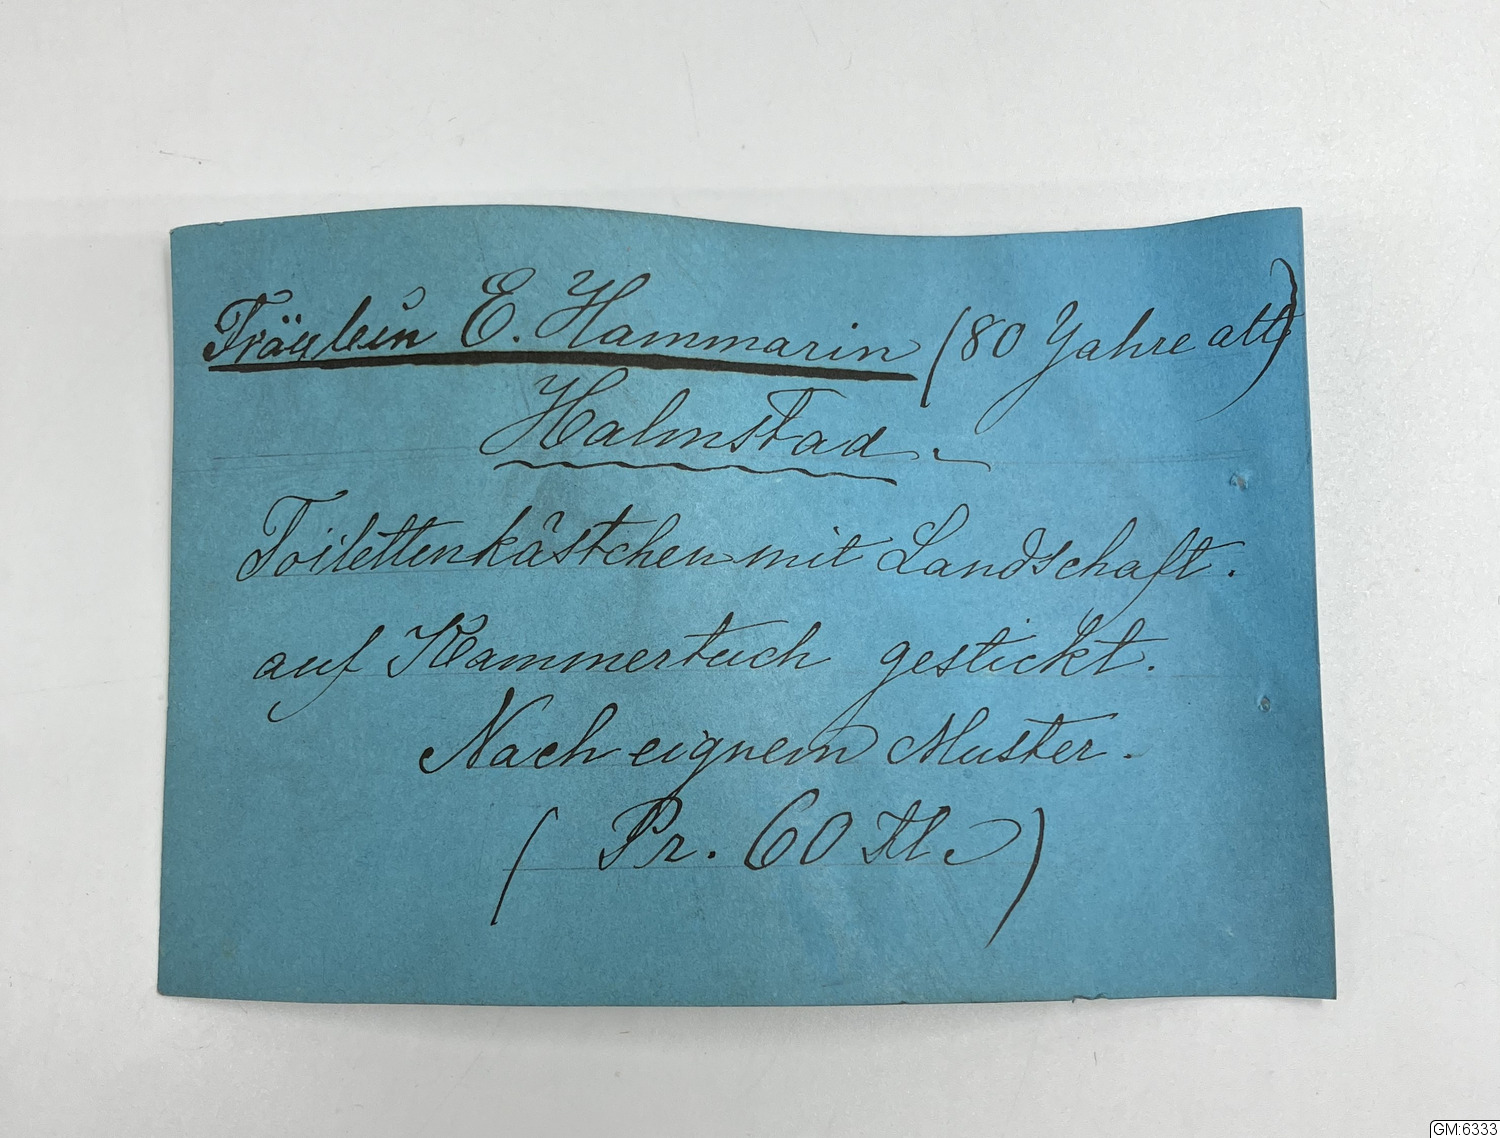 Fräulein E. Hammarin (80 Jahre alt)
Halmstad.
Toilettenkästchen mit Landschaft.
auf Kammertuch gestickt.
Nach eignem Muster.
( Pr. 60 Fl. )
GM:6333